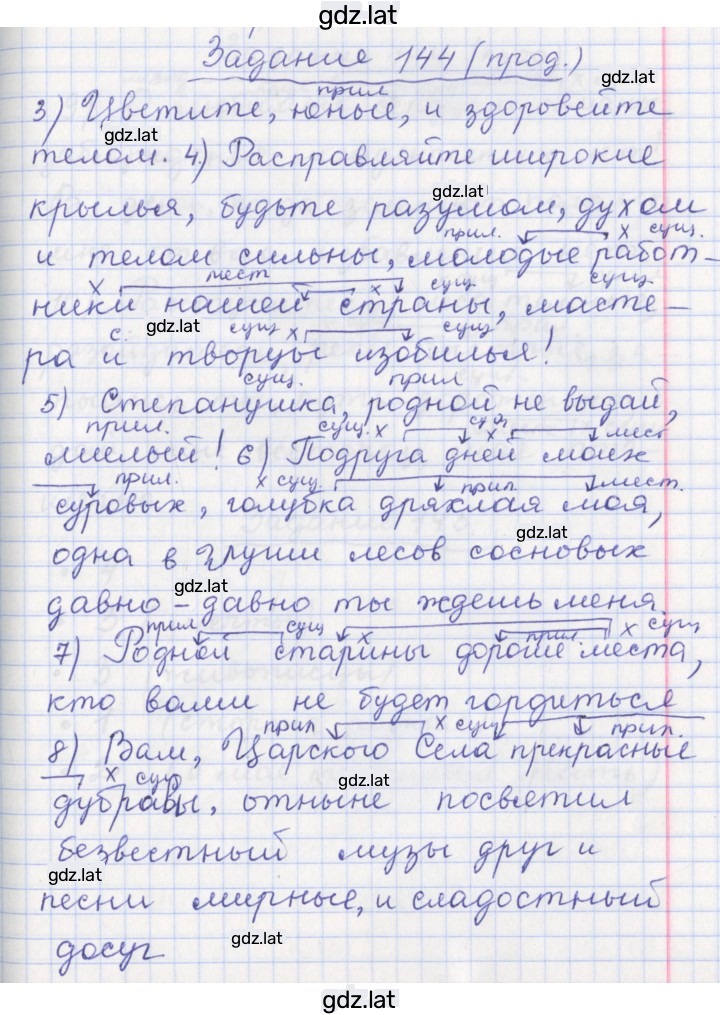 gdz.lat
Задание 144 (прод.)
gdz.lat
прил
3) Цветите, юные, и здоровейте
gdz.lat
телом. 4.) Расправляйте широкие
gdz.lat
крылья, будьте разумом, духом
прил. х сущ.
и телом сильны, молодые работ-
х мест х сущ. сущ.
ники нашей страны, масте-
gdz.lat
с. сущ х сущ
ра и творцы изобилья!
сущ. прил
5) Степанушка, родной не выдай,
прил. сущ. х сущ х мест
милый! 6) Подруга дней моих
прил. х сущ. прил. мест.
суровых, голубка дряхлая моя,
gdz.lat
одна в глуши лесов сосновых
gdz.lat
давно-давно ты ждешь меня.
прил сущ х прил х сущ
7) Родной старины дорогие места,
кто вами не будет гордиться
прил х сущ прил.
8) Вам, Царского Села прекрасные
х сущ
gdz.lat
дубравы, отныне посвятил
безвестный музы друг и
gdz.lat
песни мирные, и сладостный
gdz.lat
досуг
gdz.lat